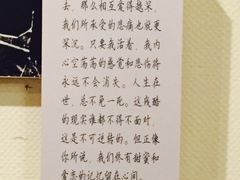 去，那么相互爱得越深，
我们所承受的悲痛也就更
深沉。只要我活着，我内
心空荡荡的感觉和悲伤将
永远不会消失。人生在
世，总不免一死。这残酷
的现实谁都不得不面对，
这是不可逆转的。但正像
你所说，我们终有甜蜜和
爱恋的记忆留在心间。